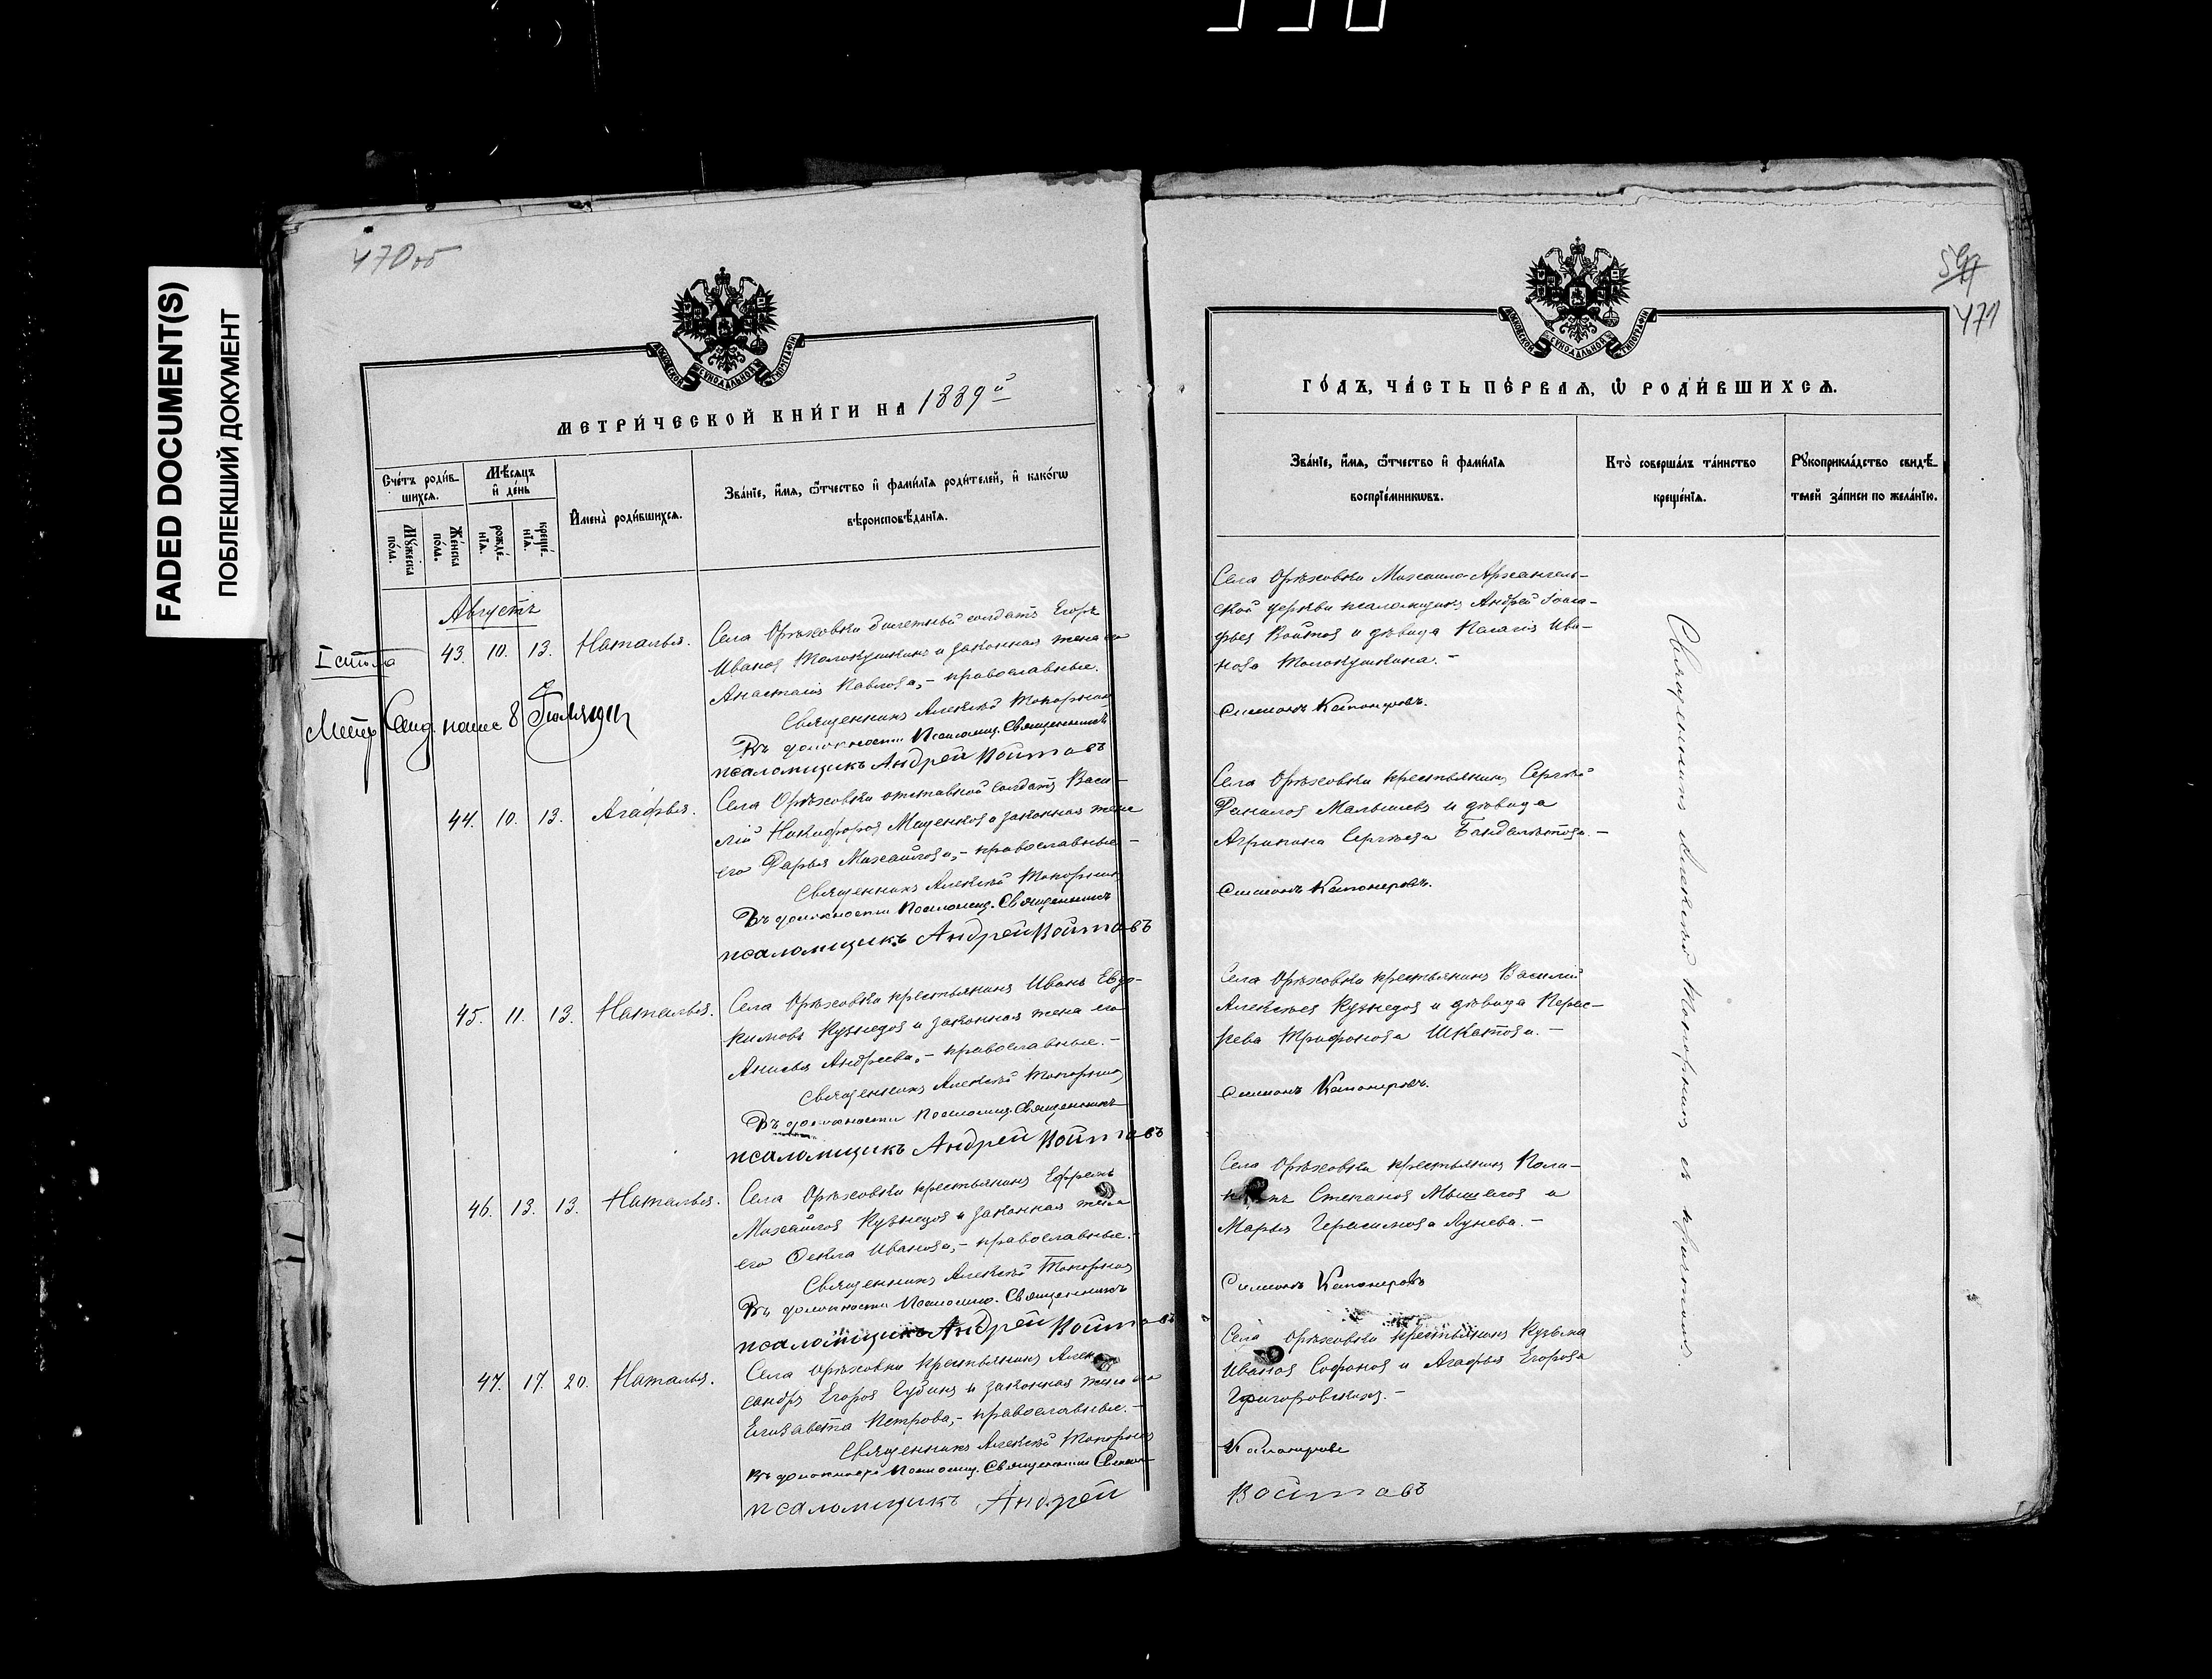 FADED DOCUMENT(S)
ПОБЛЕКШИЙ ДОКУМЕНТ
470 об
МЕТРИ́ЧЕСКОЙ КНИ́ГИ НА 1889й
Сче́тъ роди́в-
шихсѧ.
Мѣ́сѧцъ
и҆ де́нь
Мꙋ́жеска по́ла.
Же́нска по́ла.
рожде́-
нїѧ.
креще́-
нїѧ.
И҆мена̀ роди́вшихсѧ.
Зва́нїе, и҆́мѧ, ѻ҆́тчество и҆ фами́лїѧ роди́телей, и҆ како́гѡ
вѣроисповѣ́данїѧ.
Августъ
43. 10. 13. Наталья.
Села Орѣховки билетный солдатъ Егоръ
Ивановъ Толокушкинъ и законная жена его
Анастасія Павлова, - православные.
Священникъ Алексѣй Топорнинъ
Въ должности Псаломщ. Священникъ
псаломщикъ Андрей Войтовъ
44. 10. 13. Агафья.
Села Орѣховки отставной солдатъ Васи-
лій Никифоровъ Мащенковъ и законная жена
его Дарья Михайлова, - православные -
Священникъ Алексѣй Топорнинъ
Въ должности Псаломщ. Священникъ
псаломщикъ Андрей Войтовъ
45. 11. 13. Наталья.
Села Орѣховки крестьянинъ Иванъ Евдо-
кимовъ Кузнецовъ и законная жена его
Анисья Андреева, - православные. -
Священникъ Алексѣй Топорнинъ
Въ должности Псаломщ. Священникъ
псаломщикъ Андрей Войтовъ
46. 13. 13. Наталья.
Села Орѣховки крестьянинъ Ефремъ
Михайловъ Кузнецовъ и законная жена
его Ѳекла Иванова, - православные. -
Священникъ Алексѣй Топорнинъ
Въ должности Псаломщ. Священникъ
псаломщикъ Андрей Войтовъ
47. 17. 20. Наталья.
Села Орѣховки крестьянинъ Алек-
сандръ Егоровъ Губинъ и законная жена его
Елизавета Петрова, - православные. -
Священникъ Алексѣй Топорнинъ
Въ должности Псаломщ. Священникъ Симеонъ
псаломщикъ Андрей
471
ГО́ДЪ, ЧА́СТЬ ПЕ́РВАѦ, Ѡ҆ РОДИ́ВШИХСѦ.
Зва́нїе, и҆́мѧ, ѻ҆́тчество и҆ фами́лїѧ
воспрїе́мникѡвъ.
Кто̀ соверша́лъ та́инство
креще́нїѧ.
Рꙋкоприкла́дство свидѣ́-
телей за́писи по жела́нїю.
Села Орѣховки Михаило-Архангель-
ской церкви псаломщикъ Андрей Іоан-
новъ Войтовъ и дѣвица Пелагія Ива-
нова Толокушкина. -
Симеонъ Капонировъ.
Села Орѣховки крестьянинъ Сергѣй
Даниловъ Малышевъ и дѣвица
Агрипина Сергѣева Бандалетова. -
Симеонъ Капонировъ.
Села Орѣховки крестьянинъ Василій
Алексѣевъ Кузнецовъ и дѣвица Парас-
кева Трифонова Шкатова. -
Симеонъ Капонировъ.
Села Орѣховки крестьянинъ
Степановъ и
Марья Герасимова Лунева. -
Симеонъ Капонировъ
Села Орѣховки крестьянинъ Кузьма
Ивановъ Софоновъ и Агафья Егорова
Григоровскихъ. -
Капонировъ
Войтовъ
Священникъ Алексѣй Топорнинъ съ причтомъ.